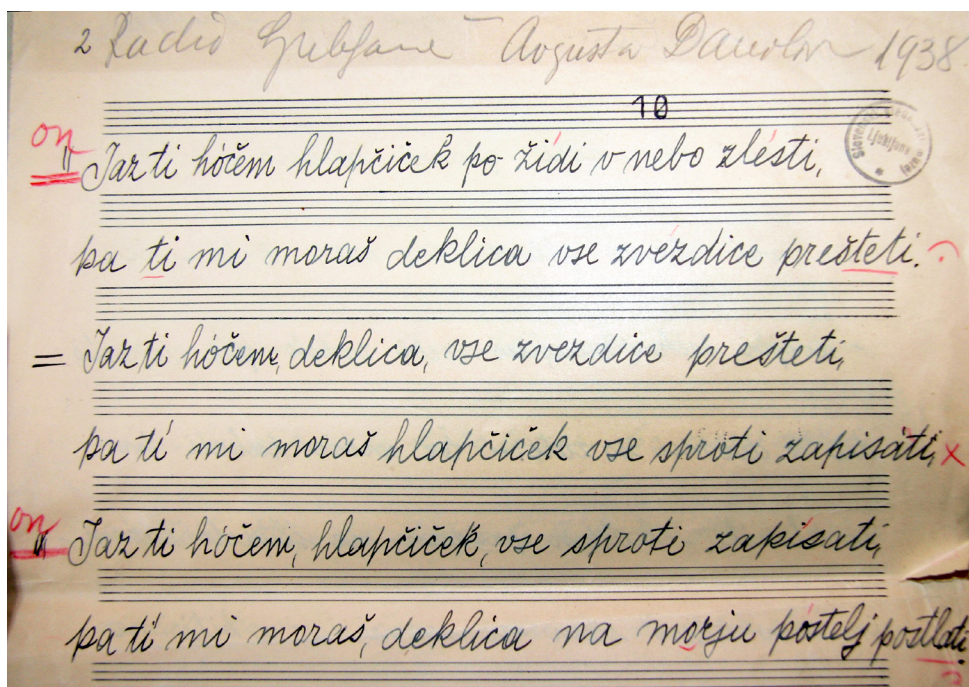 2 Radio Ljubljana Avgusta Danilova 1938
10
on
Jaz ti hóčem hlapčiček po žídi v nebo zlésti,
pa ti mi moraš deklica vse zvezdice prešteti.
Jaz ti hóčem, deklica, vse zvezdice prešteti,
pa ti mi moraš hlapčiček vse sproti zapisáti,
on
Jaz ti hóčem, hlapčiček, vse sproti zapisati,
pa ti mi moraš, deklica na morju póstelj postlati.
Ljubljana